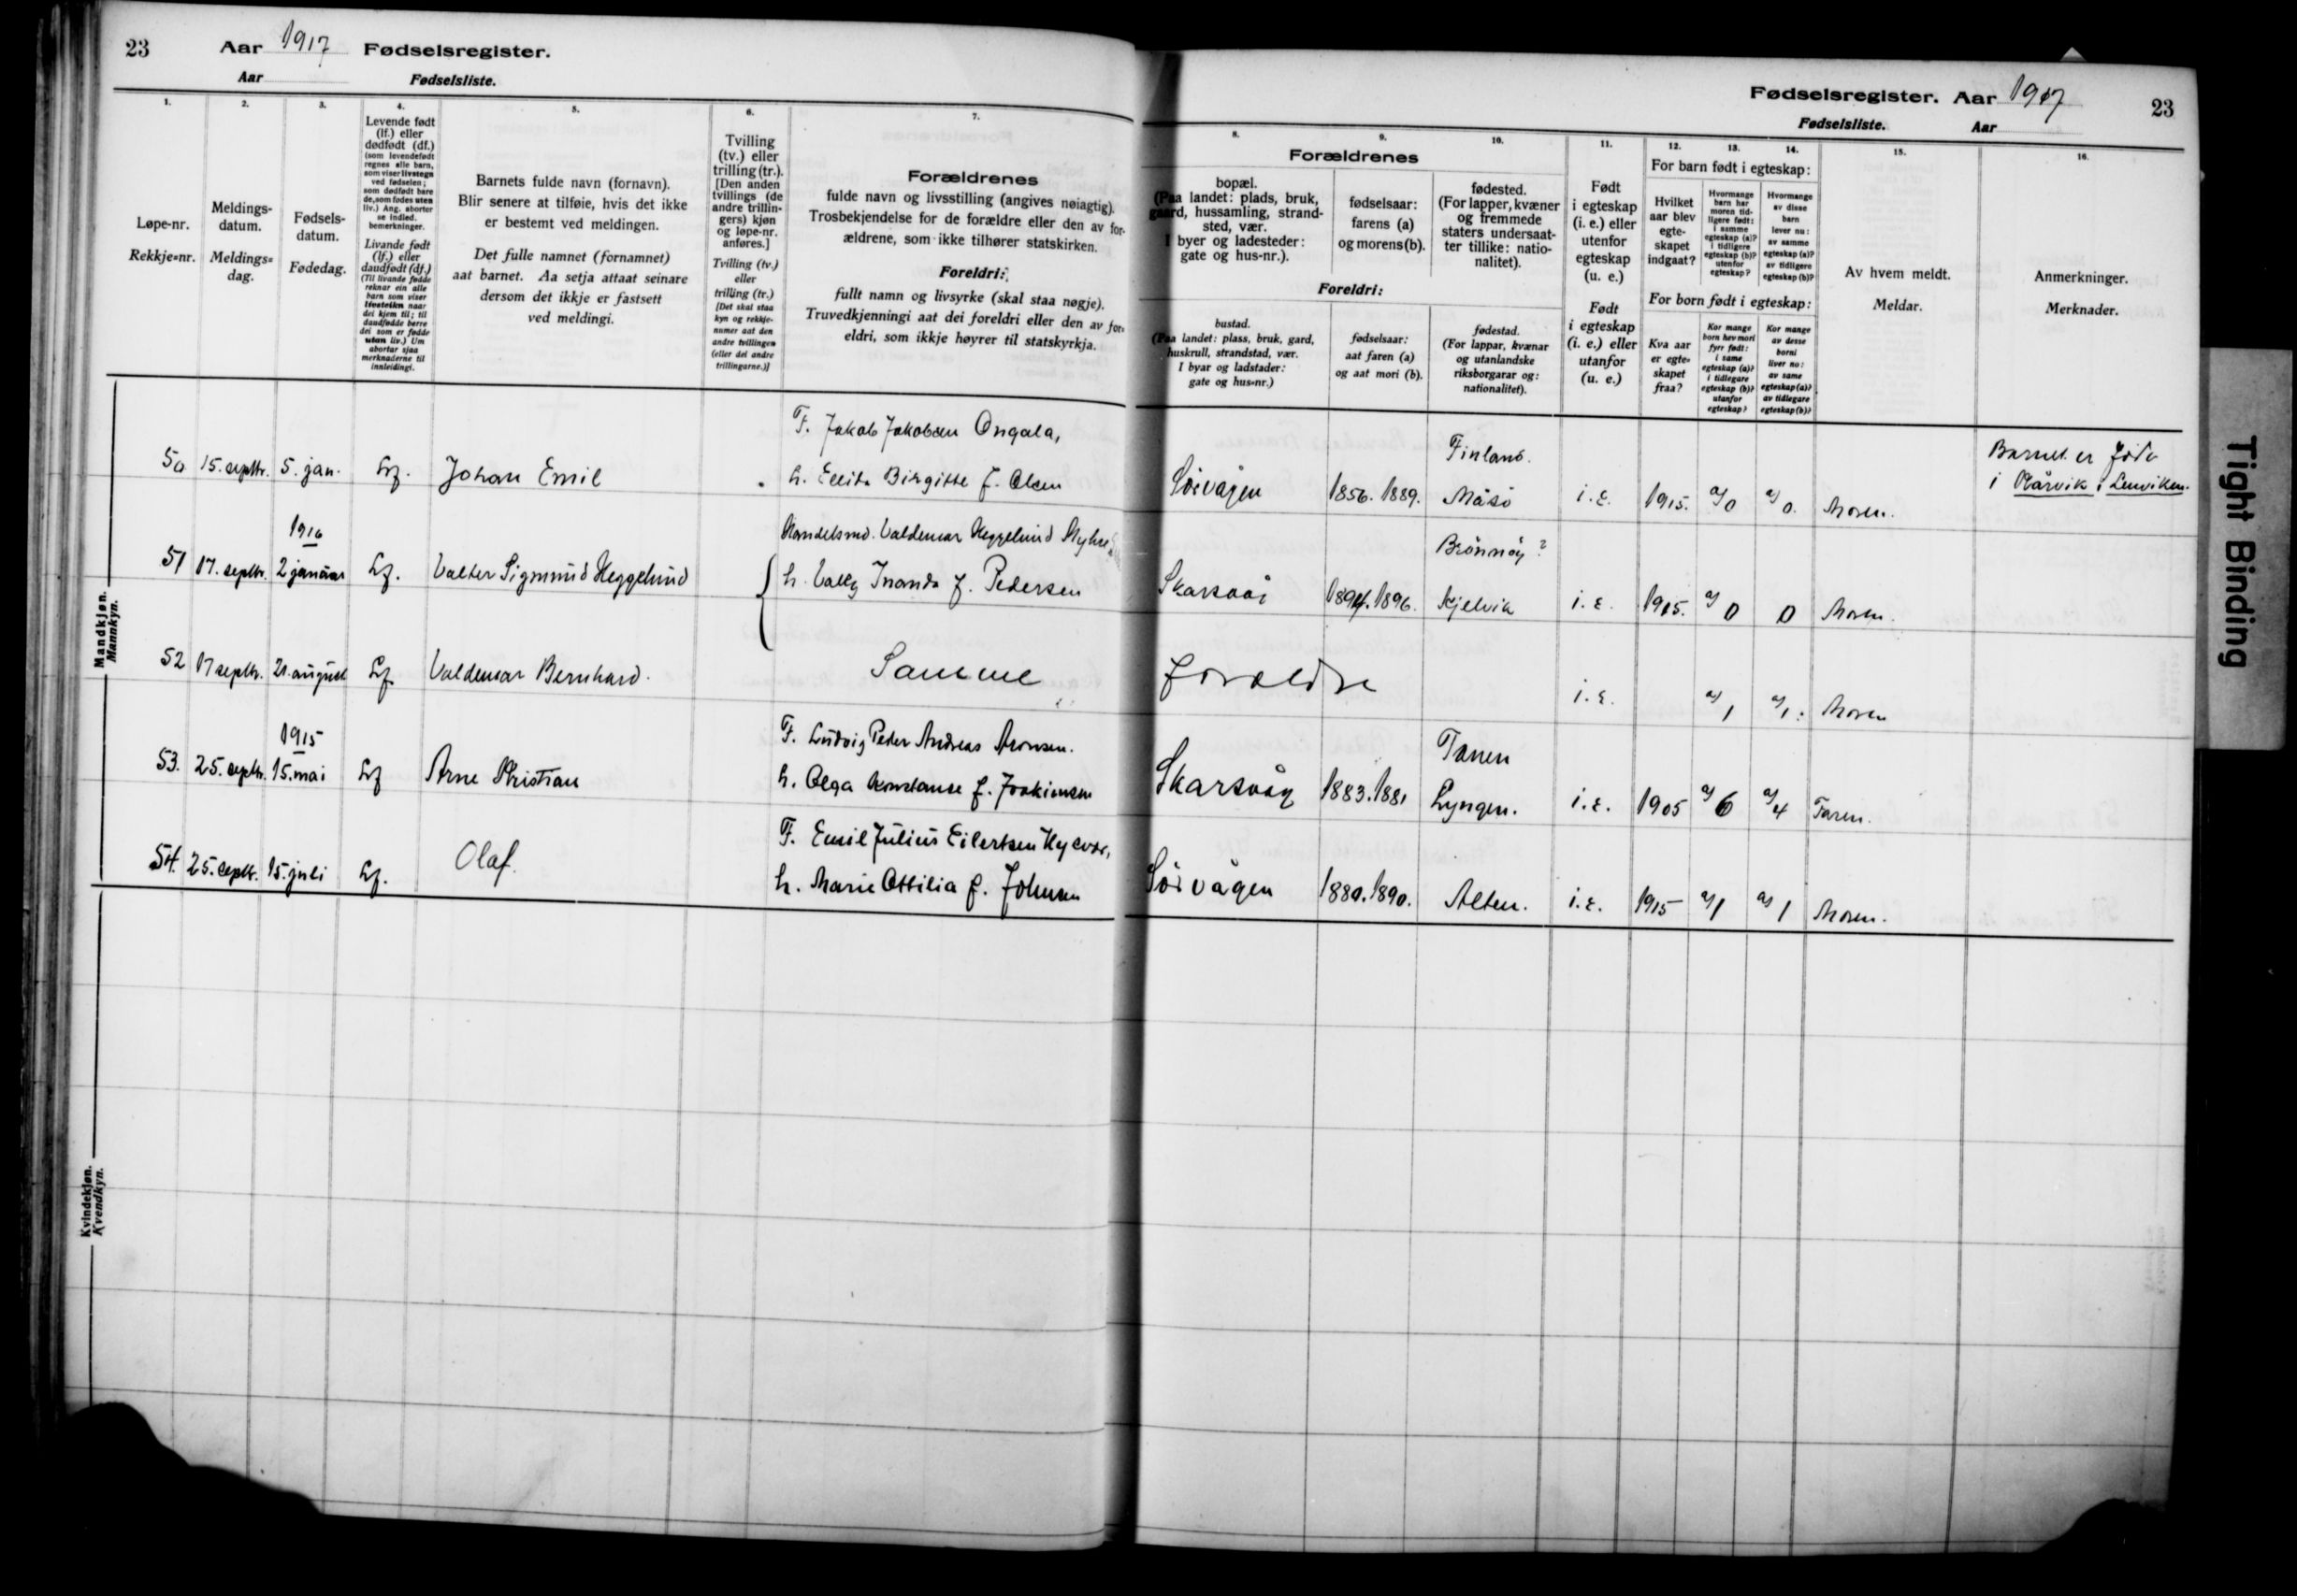 23 Aar 1917 Fødselsregister.
Aar Fødselsliste.
1. 2. 3. 4. 5. 6. 7.
Løpe-nr.
Rekkje=nr.
Meldings-
datum.
Meldings=
dag.
Fødsels-
datum.
Fødedag.
Levende født
(lf.) eller
dødfødt (df.)
(som levendefødt
regnes alle barn,
som viser livstegn
ved fødselen;
som dødfødt bare
de, som fødes uten
liv.) Ang. aborter
se indled.
bemerkninger.
Livande født
(lf.) eller
daudfødt (df.)
(Til livande fødde
reknar ein alle
barn som viser
livsteikn naar
dei kjem til; til
daudfødde berre
dei som er fødde
utan liv.) Um
abortar sjaa
merknaderne til
innleidingi.
Barnets fulde navn (fornavn).
Blir senere at tilføie, hvis det ikke
er bestemt ved meldingen.
Det fulle namnet (fornamnet)
aat barnet. Aa setja attaat seinare
dersom det ikkje er fastsett
ved meldingi.
Tvilling
(tv.) eller
trilling (tr.).
[Den anden
tvillings (de
andre trillin-
gers) kjøn
og løpe-nr.
anføres.]
Tvilling (tv.)
eller
trilling (tr.)
[Det skal staa
kyn og rekkje-
numer aat den
andre tvillingen
(eller dei andre
trillingarne.)]
Forældrenes
fulde navn og livsstilling (angives nøiagtig).
Trosbekjendelse for de forældre eller den av for-
ældrene, som ikke tilhører statskirken.
Foreldri:
fullt namn og livsyrke (skal staa nøgje).
Truvedkjenningi aat dei foreldri eller den av for-
eldri, som ikkje høyrer til statskyrkja.
Mandkjøn.
Mannkyn.
F. Jakob Jakobsen Ongala,
50 15. septbr. 5. jan. Lf. Johan Emil h. Elida Birgitte f. Olsen
1916
51 17. septbr. 2 januar Lf. Valter Sigmund Heggelund
Handelsmd. Valdemar Heggelund
h. Vally Inanda f. Pedersen
52 17 septbr. 21. august Lf. Valdemar Bernhard. Samme
1915
F. Ludvig Peder Andreas Aronsen.
53. 25. septbr. 15. mai Lf Arne Kristian h. Olga Konstanse f. Joakimsen
F. Emil Julius Eilertsen
54. 25. septbr. 15. juli Lf. Olaf. h. Marie Ottilia f. Johnsen
Kvindekjøn.
Kvendkyn.
Fødselsregister. Aar 1917 23
Fødselsliste. Aar
8. 9. 10. 11. 12. 13. 14. 15. 16.
Forældrenes
bopæl.
(Paa landet: plads, bruk,
gaard, hussamling, strand-
sted, vær.
I byer og ladesteder:
gate og hus-nr.).
fødselsaar:
farens (a)
og morens (b).
fødested.
(For lapper, kvæner
og fremmede
staters undersaat-
ter tillike: natio-
nalitet).
Foreldri:
bustad.
(Paa landet: plass, bruk, gard,
huskrull, strandstad, vær.
I byar og ladstader:
gate og hus=nr.)
fødselsaar:
aat faren (a)
og aat mori (b).
fødestad.
(For lappar, kvænar
og utanlandske
riksborgarar og:
nationalitet).
Født
i egteskap
(i. e.) eller
utenfor
egteskap
(u. e.)
Født
i egteskap
(i. e.) eller
utanfor
(u. e.)
For barn født i egteskap:
Hvilket
aar blev
egte-
skapet
indgaat?
Hvormange
barn har
moren tid-
ligere født:
i samme
egteskap (a)?
i tidligere
egteskap (b)?
utenfor
egteskap?
Hvormange
av disse
barn
lever nu:
av samme
egteskap (a)?
av tidligere
egteskap (b)?
For born født i egteskap:
Kva aar
er egte-
skapet
fraa?
Kor mange
born hev mori
fyrr født:
i same
egteskap (a)?
i tidlegare
egteskap (b)?
utanfor
egteskap?
Kor mange
av desse
borni
liver no:
av same
egteskap (a)?
av tidlegare
egteskap (b)?
Av hvem meldt.
Meldar.
Anmerkninger.
Merknader.
Finland.
Sørvågen 1856. 1889. Måsø i. e. 1915. a/0 a/0. Moren.
Barnet er føde
i Kårvik i Lenviken.
Brönnöy?
Skarsvåg 1894. 1896. Kjelvik i. e. 1915. a/0 0 Moren.
forældre i. e. a/1 a/1. Moren
Tanen
Skarsvåg 1883. 1881 Lyngen. i. e. 1905 a/6 a/4 Faren.
Sørvågen 1880. 1890. Alten. i. e. 1915 a/1 a/1 Moren.
Tight Binding